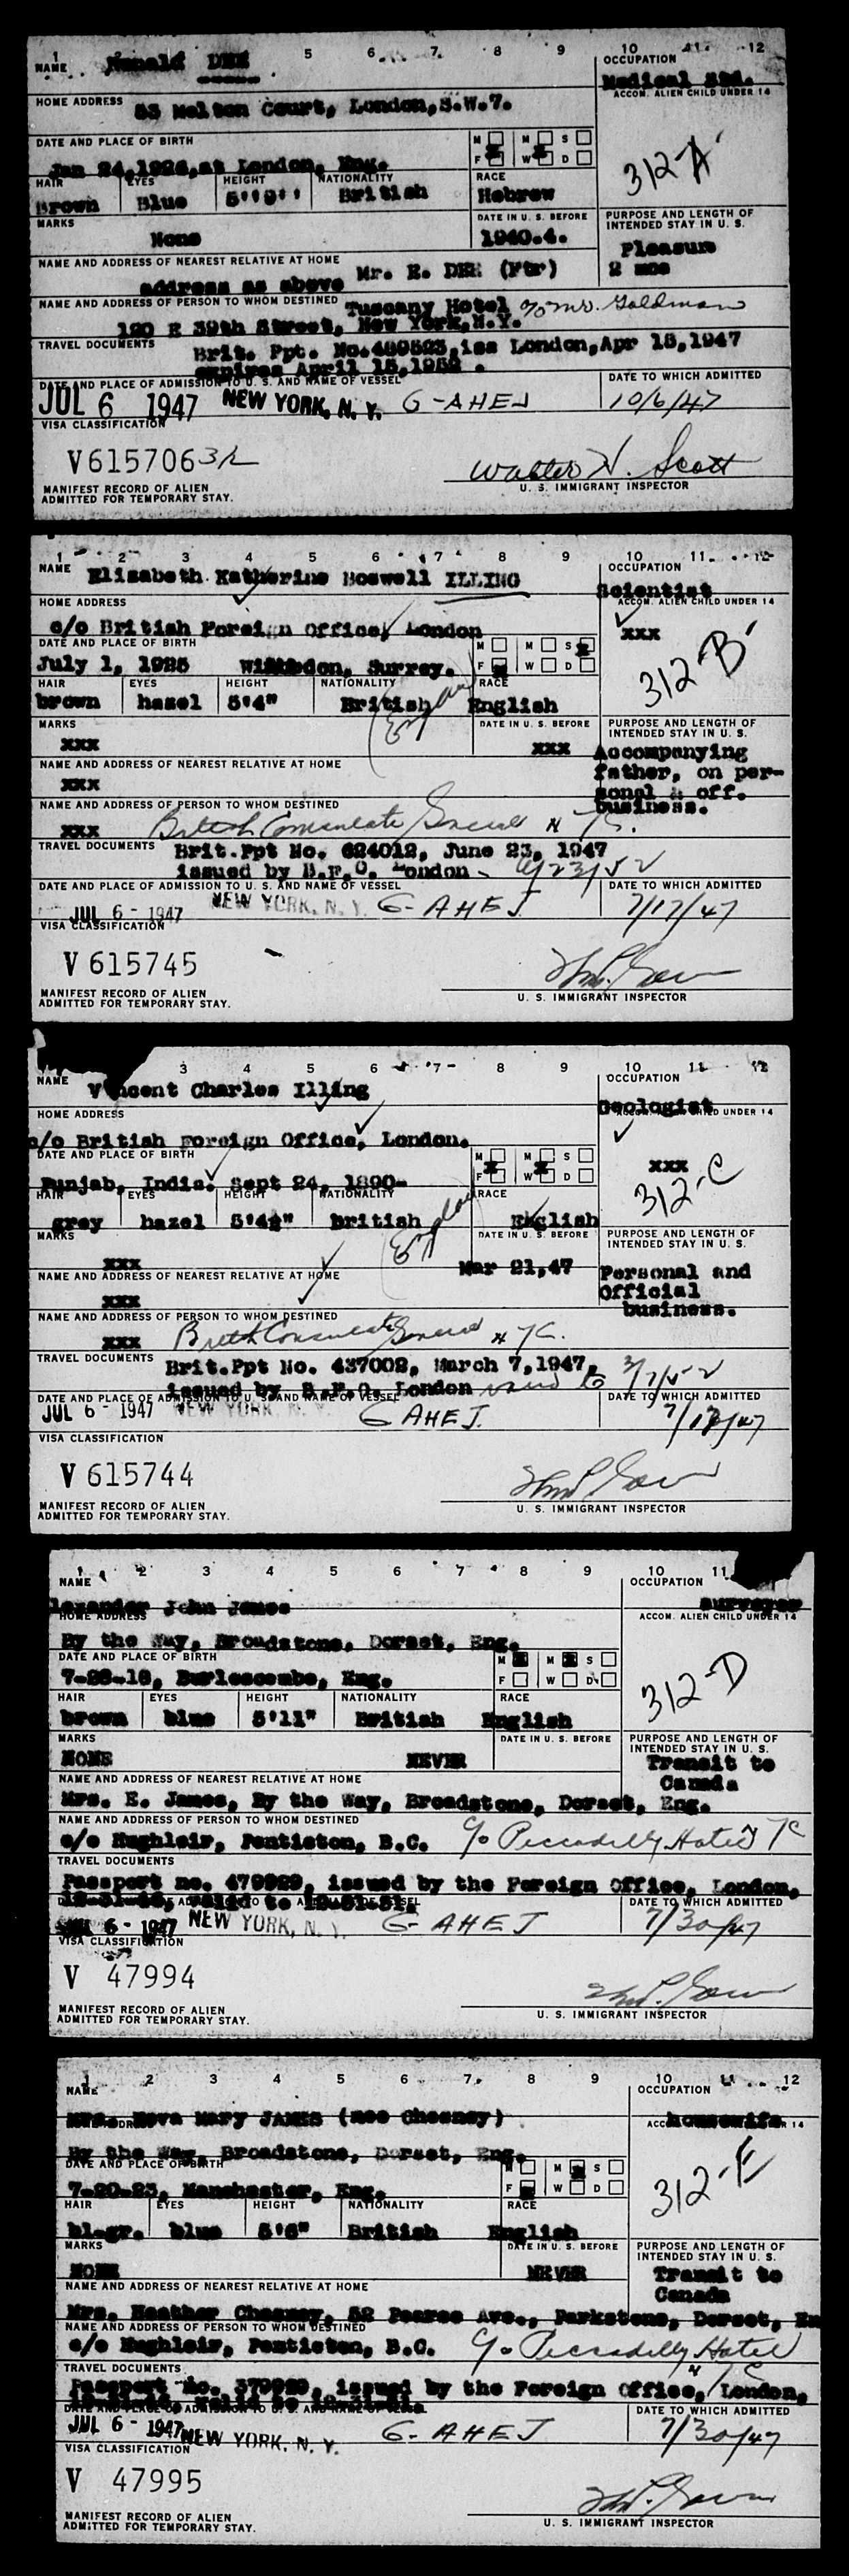 1 5 6 7 8 9 10 11 12
NAME DEE OCCUPATION
Medical Std.
ACCOM. ALIEN CHILD UNDER 14
HOME ADDRESS 53 Melton Court, London, S.W.7.
DATE AND PLACE OF BIRTH M M S
Jan 24, at London, Eng. F W D
312-A
HAIR EYES HEIGHT NATIONALITY RACE
Brown Blue 5'9'' British Hebrew
MARKS DATE IN U. S. BEFORE PURPOSE AND LENGTH OF INTENDED STAY IN U. S.
None 1940.4. Pleasure
2 mos
NAME AND ADDRESS OF NEAREST RELATIVE AT HOME
address as above Mr. E. DEE (Ftr)
NAME AND ADDRESS OF PERSON TO WHOM DESTINED Tuscany Hotel c/o Mr. Goldman
120 E 39th Street, New York, N.Y.
TRAVEL DOCUMENTS Brit. Ppt. No. 489523, iss London, Apr 15, 1947
expires April 15, 1952 .
DATE AND PLACE OF ADMISSION TO U. S. AND NAME OF VESSEL DATE TO WHICH ADMITTED
JUL 6 1947 NEW YORK, N. Y. G-AHEJ 10/6/47
VISA CLASSIFICATION
V615706 3/2
Walter H. Scott
MANIFEST RECORD OF ALIEN U. S. IMMIGRANT INSPECTOR
ADMITTED FOR TEMPORARY STAY.
1 2 3 4 5 6 7 8 9 10 11 12
NAME Elizabeth Katherine Boswell ILLING OCCUPATION
Scientist
HOME ADDRESS ACCOM. ALIEN CHILD UNDER 14
c/o British Foreign Office, London xxx
DATE AND PLACE OF BIRTH M M S
July 1, 1925 Wimbledon, Surrey. F W D
312-B
HAIR EYES HEIGHT NATIONALITY RACE
brown hazel 5'4" British (England) English
MARKS DATE IN U. S. BEFORE PURPOSE AND LENGTH OF INTENDED STAY IN U. S.
xxx xxx Accompanying
father, on per-
sonal & off.
business.
NAME AND ADDRESS OF NEAREST RELATIVE AT HOME
xxx
NAME AND ADDRESS OF PERSON TO WHOM DESTINED
xxx British Consulate General N.Y.C.
TRAVEL DOCUMENTS Brit.Ppt No. 624012, June 23, 1947
issued by B.F.O. London - 6/23/52
DATE AND PLACE OF ADMISSION TO U. S. AND NAME OF VESSEL DATE TO WHICH ADMITTED
JUL 6 - 1947 NEW YORK, N. Y. G-AHEJ 7/17/47
VISA CLASSIFICATION
V 615745
MANIFEST RECORD OF ALIEN U. S. IMMIGRANT INSPECTOR
ADMITTED FOR TEMPORARY STAY.
3 4 5 6 7 8 9 10 11 12
NAME Vincent Charles Illing OCCUPATION
Geologist
HOME ADDRESS ACCOM. ALIEN CHILD UNDER 14
c/o British Foreign Office, London.
DATE AND PLACE OF BIRTH M M S
Punjab, India. Sept 24, 1890- F W D
xxx
312-C
HAIR EYES HEIGHT NATIONALITY RACE
grey hazel 5'4½" british (England) English
MARKS DATE IN U. S. BEFORE PURPOSE AND LENGTH OF INTENDED STAY IN U. S.
xxx Mar 21,47 Personal and
Official
business.
NAME AND ADDRESS OF NEAREST RELATIVE AT HOME
xxx
NAME AND ADDRESS OF PERSON TO WHOM DESTINED
xxx British Consulate General N.Y.C.
TRAVEL DOCUMENTS Brit.Ppt No. 437002, March 7,1947,
issued by B.F.O. London valid to 3/7/52
DATE AND PLACE OF ADMISSION TO U. S. AND NAME OF VESSEL DATE TO WHICH ADMITTED
JUL 6 - 1947 NEW YORK, N. Y. G AHEJ. 7/17/47
VISA CLASSIFICATION
V 615744
MANIFEST RECORD OF ALIEN U. S. IMMIGRANT INSPECTOR
ADMITTED FOR TEMPORARY STAY.
1 2 3 4 5 6 7 8 9 10 11
NAME OCCUPATION
lexander John James surveyor
HOME ADDRESS ACCOM. ALIEN CHILD UNDER 14
By the Way, Broadstone, Dorset, Eng.
DATE AND PLACE OF BIRTH M M S
7-28-18, Burlescombe, Eng. F W D
312-D
HAIR EYES HEIGHT NATIONALITY RACE
brown blue 5'11" British English
MARKS DATE IN U. S. BEFORE PURPOSE AND LENGTH OF INTENDED STAY IN U. S.
NONE NEVER Transit to
Canada
NAME AND ADDRESS OF NEAREST RELATIVE AT HOME
Mrs. E. James, By the Way, Broadstone, Dorset, Eng.
NAME AND ADDRESS OF PERSON TO WHOM DESTINED
c/o Hughleir, Penticton, B.C. c/o Piccadilly Hotel NYC
TRAVEL DOCUMENTS
Passport no. 479929, issued by the Foreign Office, London,
valid to 12-31-51.
DATE AND PLACE OF ADMISSION TO U. S. AND NAME OF VESSEL DATE TO WHICH ADMITTED
JUL 6 - 1947 NEW YORK, N. Y. G-AHEJ 7/30/47
VISA CLASSIFICATION
V 47994
MANIFEST RECORD OF ALIEN U. S. IMMIGRANT INSPECTOR
ADMITTED FOR TEMPORARY STAY.
1 2 3 4 5 6 7 8 9 10 11 12
NAME OCCUPATION
Mrs. Mary JAMES (nee Chesney) housewife
By the Way, Broadstone, Dorset, Eng.
DATE AND PLACE OF BIRTH M M S
7-20-23, Manchester, Eng. F W D
312-E
HAIR EYES HEIGHT NATIONALITY RACE
bl-gr. blue 5'6" British English
MARKS DATE IN U. S. BEFORE PURPOSE AND LENGTH OF INTENDED STAY IN U. S.
NONE NEVER Transit to
Canada
NAME AND ADDRESS OF NEAREST RELATIVE AT HOME
Mrs. Heather Chesney, 52 Pearce Ave., Parkstone, Dorset, En
NAME AND ADDRESS OF PERSON TO WHOM DESTINED
c/o Hughleir, Penticton, B.C. c/o Piccadilly Hotel
NYC
TRAVEL DOCUMENTS
Passport no. 379929, issued by the Foreign Office, London,
DATE AND PLACE OF ADMISSION TO U. S. AND NAME OF VESSEL DATE TO WHICH ADMITTED
JUL 6 - 1947 NEW YORK, N. Y. G-AHEJ 7/30/47
VISA CLASSIFICATION
V 47995
MANIFEST RECORD OF ALIEN U. S. IMMIGRANT INSPECTOR
ADMITTED FOR TEMPORARY STAY.